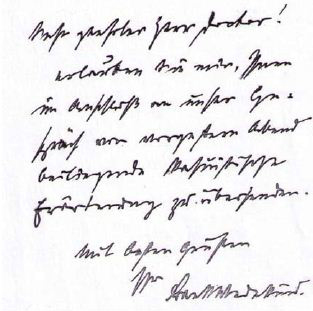 Sehr geehrter Herr Doctor!
erlauben Sie mir, Ihnen
im Anschluß an unser Ge-
spräch von vorgestern Abend
beiliegende
Erörterung zu übersenden.
Mit besten Grüßen
Ihr
Frank Wedekind.